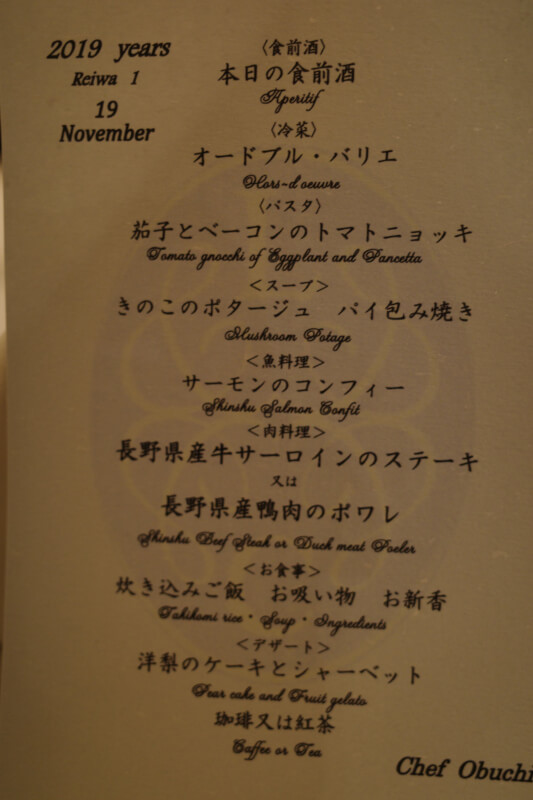 2019 years
Reiwa 1
19
November
〈食前酒〉
本日の食前酒
Aperitif
〈冷菜〉
オードブル・バリエ
Hors-d'oeuvre
〈パスタ〉
茄子とベーコンのトマトニョッキ
Tomato gnocchi of Eggplant and Pancetta
＜スープ＞
きのこのポタージュ　パイ包み焼き
Mushroom Potage
＜魚料理＞
サーモンのコンフィー
Shinshu Salmon Confit
＜肉料理＞
長野県産牛サーロインのステーキ
又は
長野県産鴨肉のポワレ
Shinshu Beef Steak or Duck meat Poeler
＜お食事＞
炊き込みご飯　お吸い物　お新香
Takikomi rice・Soup・Ingredients
＜デザート＞
洋梨のケーキとシャーベット
Pear cake and Fruit gelato
珈琲又は紅茶
Caffee or Tea
Chef Obuchi